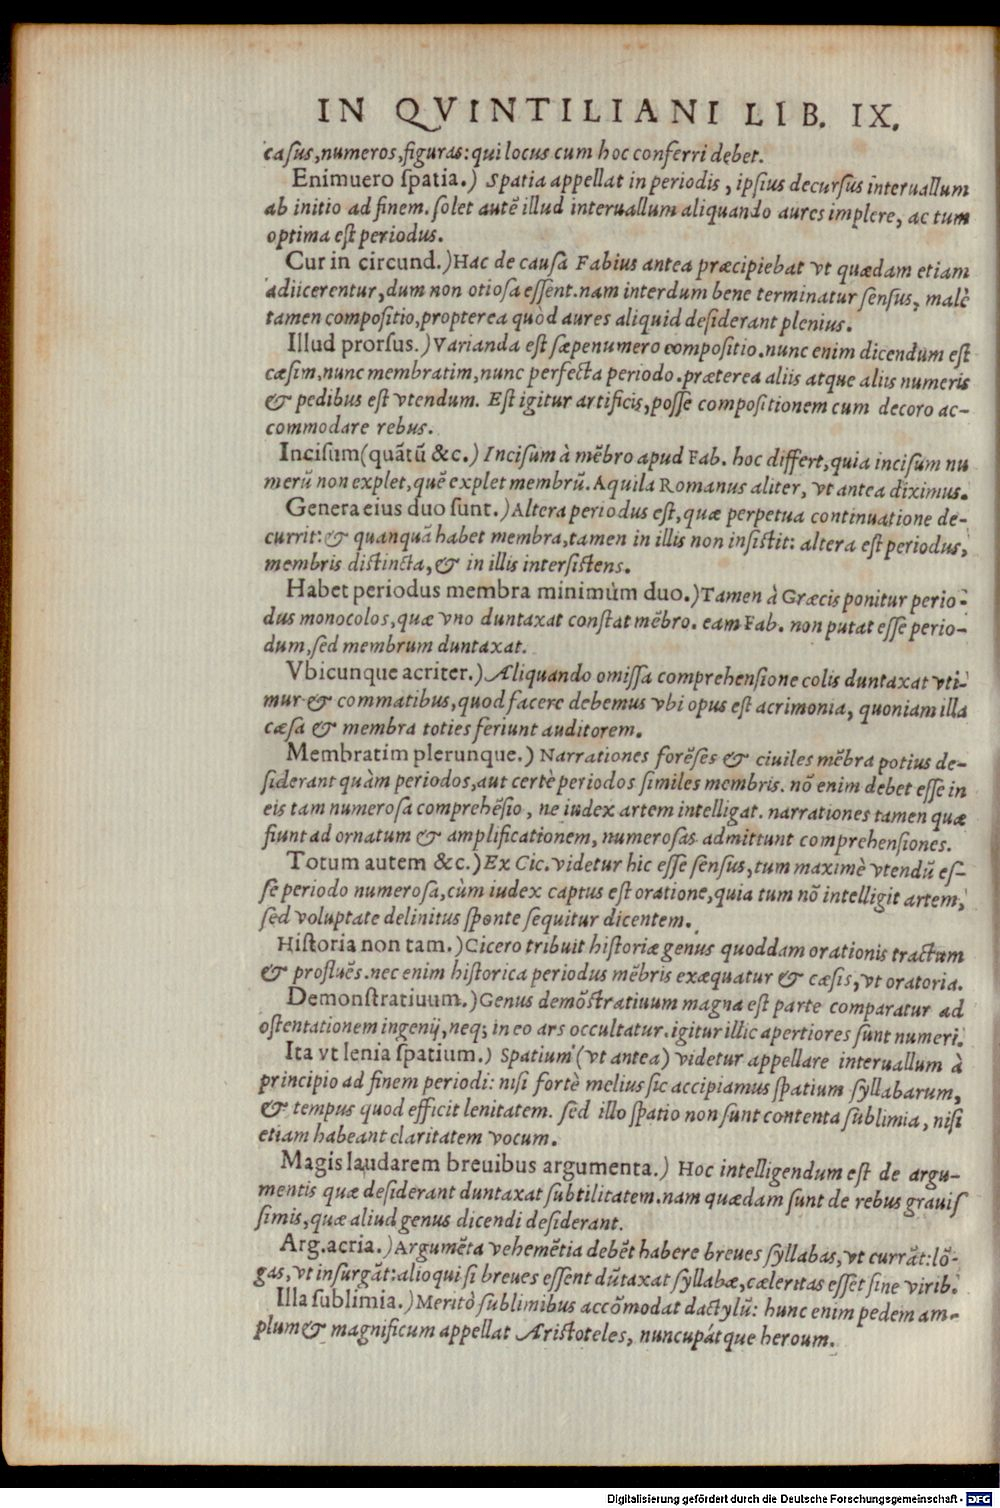 IN QVINTILIANI LIB. IX.
casus, numeros, figuras: qui locus cum hoc conferri debet.
Enimuero spatia.) Spatia appellat in periodis, ipsius decursus interuallum
ab initio ad finem. solet autē illud interuallum aliquando aures implere, ac tum
optima est periodus.
Cur in circund.) Hac de causa Fabius antea præcipiebat vt quædam etiam
adiicerentur, dum non otiosa essent. nam interdum bene terminatur sensus, malè
tamen compositio, propterea quòd aures aliquid desiderant plenius.
Illud prorsus.) Varianda est sæpenumero compositio. nunc enim dicendum est
cæsim, nunc membratim, nunc perfecta periodo. præterea aliis atque aliis numeris
& pedibus est vtendum. Est igitur artificis, posse compositionem cum decoro ac-
commodare rebus.
Incisum (quātū &c.) Incisum à mēbro apud Fab. hoc differt, quia incisum nu
merū non explet, quē explet membrū. Aquila Romanus aliter, vt antea diximus.
Genera eius duo sunt.) Altera periodus est, quæ perpetua continuatione de-
currit: & quanquā habet membra, tamen in illis non insistit: altera est periodus,
membris distincta, & in illis intersistens.
Habet periodus membra minimùm duo.) Tamen à Græcis ponitur perio-
dus monocolos, quæ vno duntaxat constat mēbro. eam Fab. non putat esse perio-
dum, sed membrum duntaxat.
Vbicunque acriter.) Aliquando omissa comprehensione colis duntaxat vti-
mur & commatibus, quod facere debemus vbi opus est acrimonia, quoniam illa
cæsa & membra toties feriunt auditorem.
Membratim plerunque.) Narrationes forēses & ciuiles mēbra potius de-
siderant quàm periodos, aut certè periodos similes membris. nō enim debet esse in
eis tam numerosa comprehēsio, ne iudex artem intelligat. narrationes tamen quæ
fiunt ad ornatum & amplificationem, numerosas admittunt comprehensiones.
Totum autem &c.) Ex Cic. videtur hic esse sensus, tum maximè vtendū es-
se periodo numerosa, cùm iudex captus est oratione, quia tum nō intelligit artem,
sed voluptate delinitus sponte sequitur dicentem.
Historia non tam.) Cicero tribuit historiæ genus quoddam orationis tractum
& profluēs. nec enim historica periodus mēbris exæquatur & cæsis, vt oratoria.
Demonstratiuum.) Genus demōstratiuum magna est parte comparatur ad
ostentationem ingenij, neq; in eo ars occultatur. igitur illic apertiores sunt numeri.
Ita vt lenia spatium.) Spatium (vt antea) videtur appellare interuallum à
principio ad finem periodi: nisi fortè melius sic accipiamus spatium syllabarum,
& tempus quod efficit lenitatem. sed illo spatio non sunt contenta sublimia, nisi
etiam habeant claritatem vocum.
Magis laudarem breuibus argumenta.) Hoc intelligendum est de argu-
mentis quæ desiderant duntaxat subtilitatem. nam quædam sunt de rebus grauis
simis, quæ aliud genus dicendi desiderant.
Arg. acria.) Argumēta vehemētia debēt habere breues syllabas, vt currāt: lō-
gas, vt insurgāt: alioqui si breues essent dūtaxat syllabæ, cæleritas esset sine virib.
Illa sublimia.) Meritò sublimibus accōmodat dactylū: hunc enim pedem am-
plum & magnificum appellat Aristoteles, nuncupátque heroum.
Digitalisierung gefördert durch die Deutsche Forschungsgemeinschaft - DFG